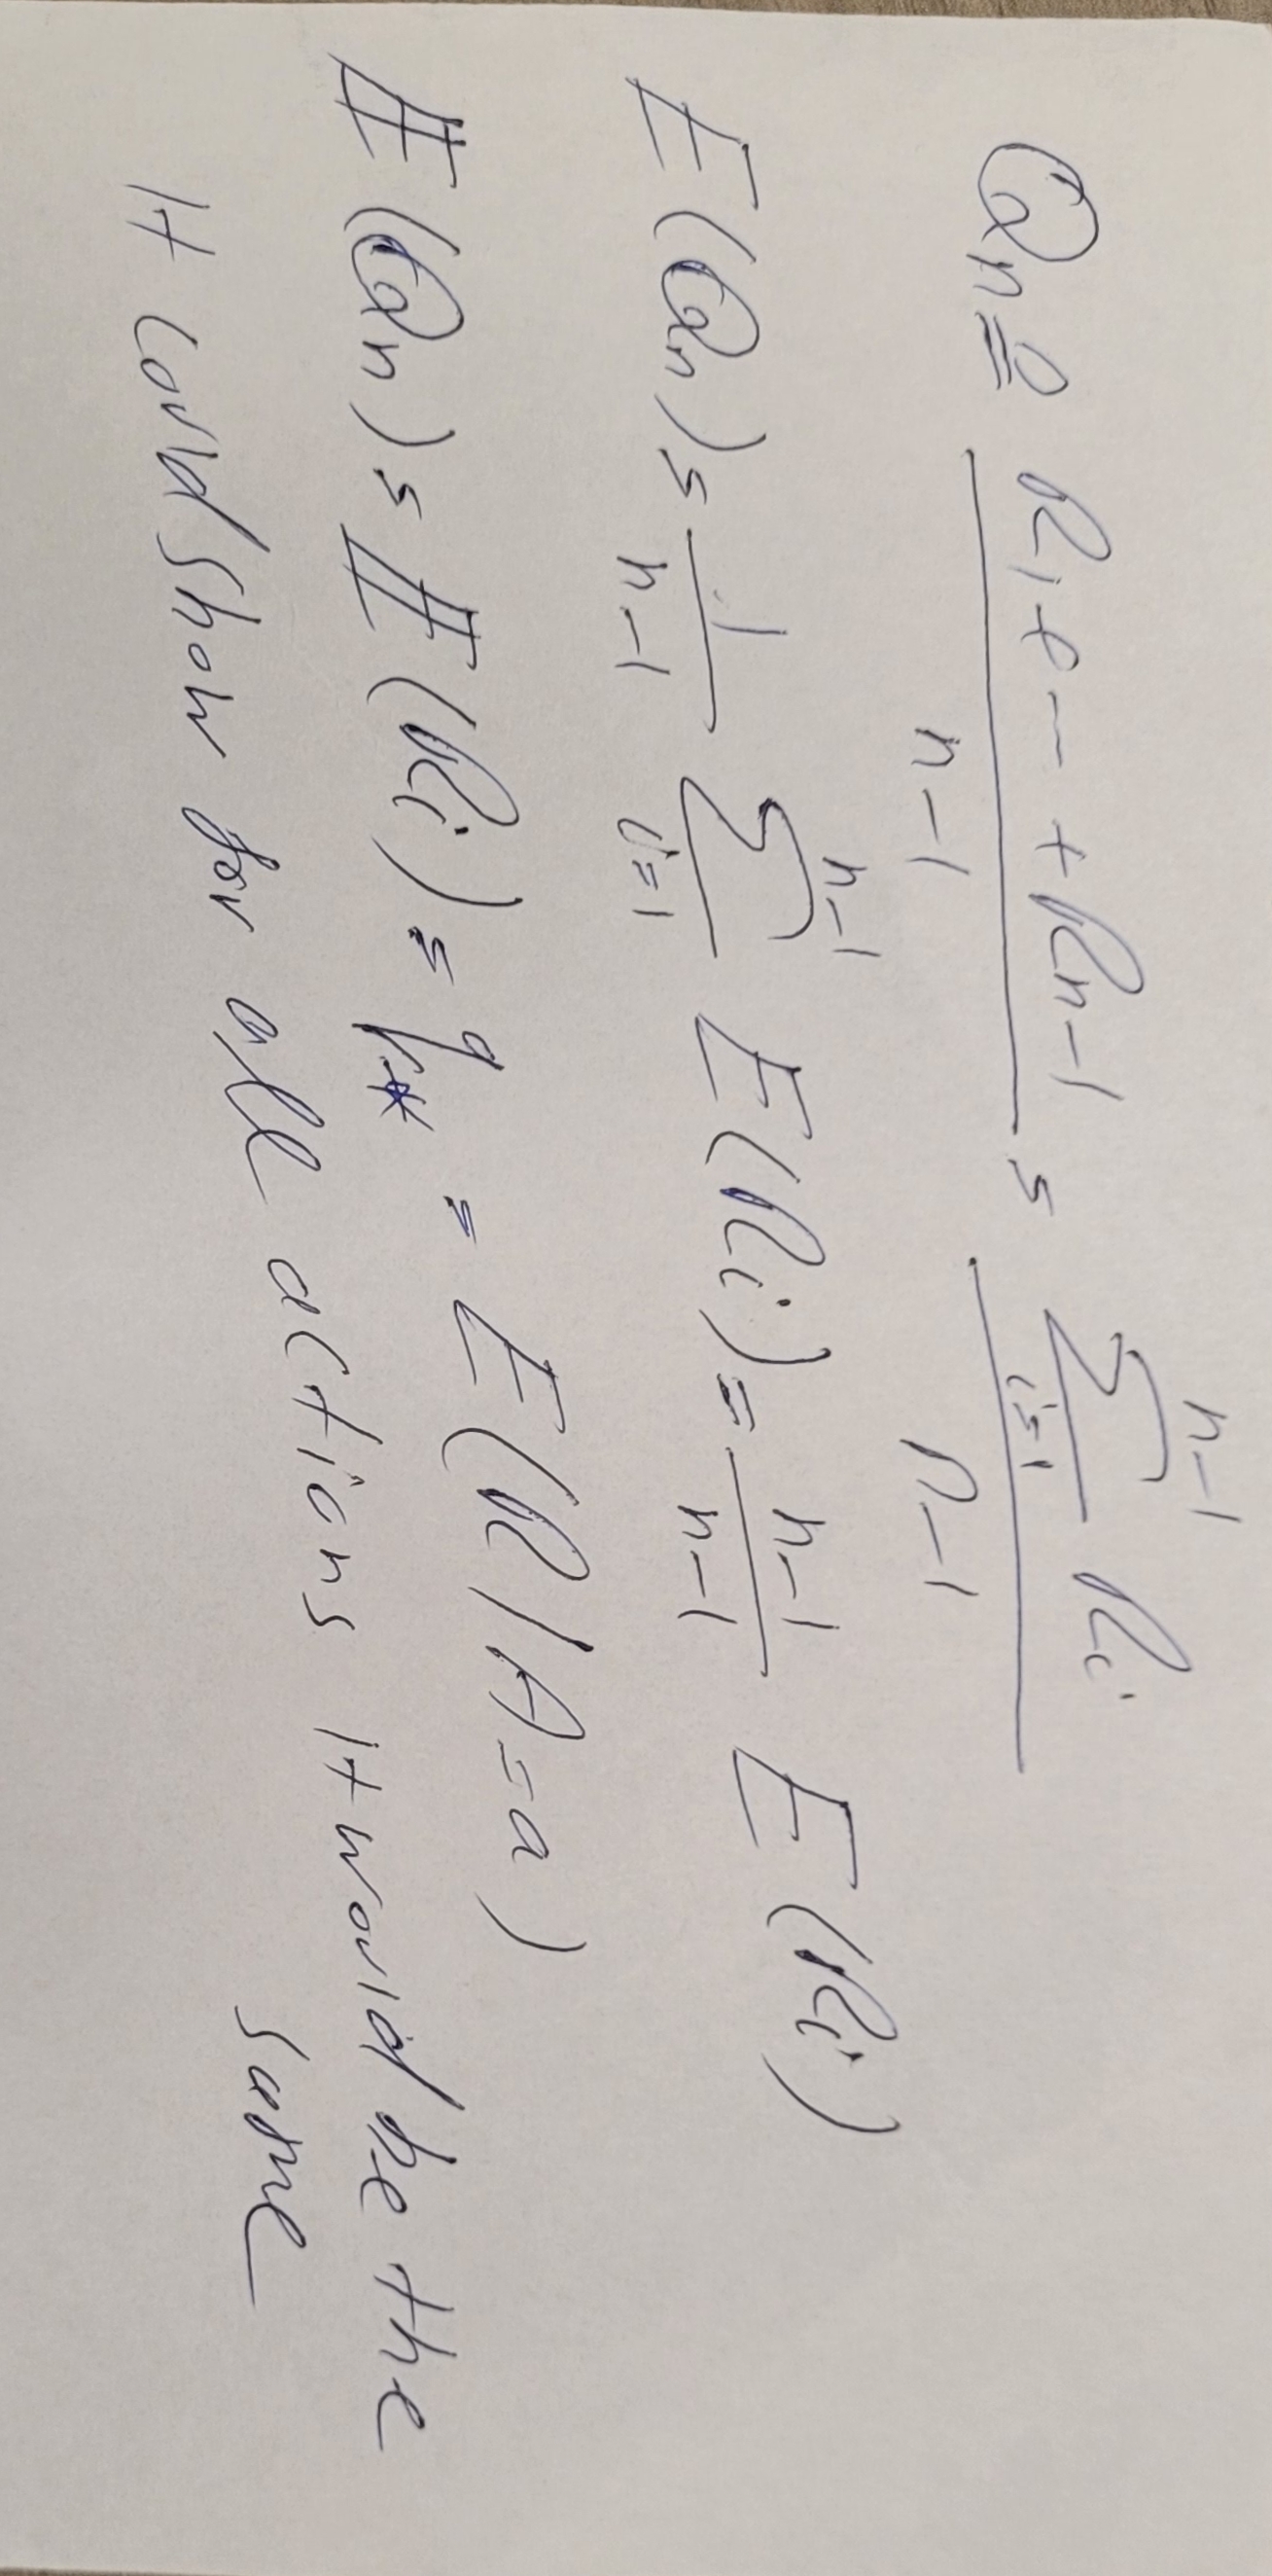 Qn ≐ (R1 + --- + Rn-1) / (n-1) = (∑_{i=1}^{n-1} Ri) / (n-1)
E(Qn) = 1/(n-1) ∑_{i=1}^{n-1} E(Ri) = (n-1)/(n-1) E(Ri)
𝔼(Qn) = 𝔼(Ri) = q* = E(R | A=a)
It could show for all actions It would be the
same